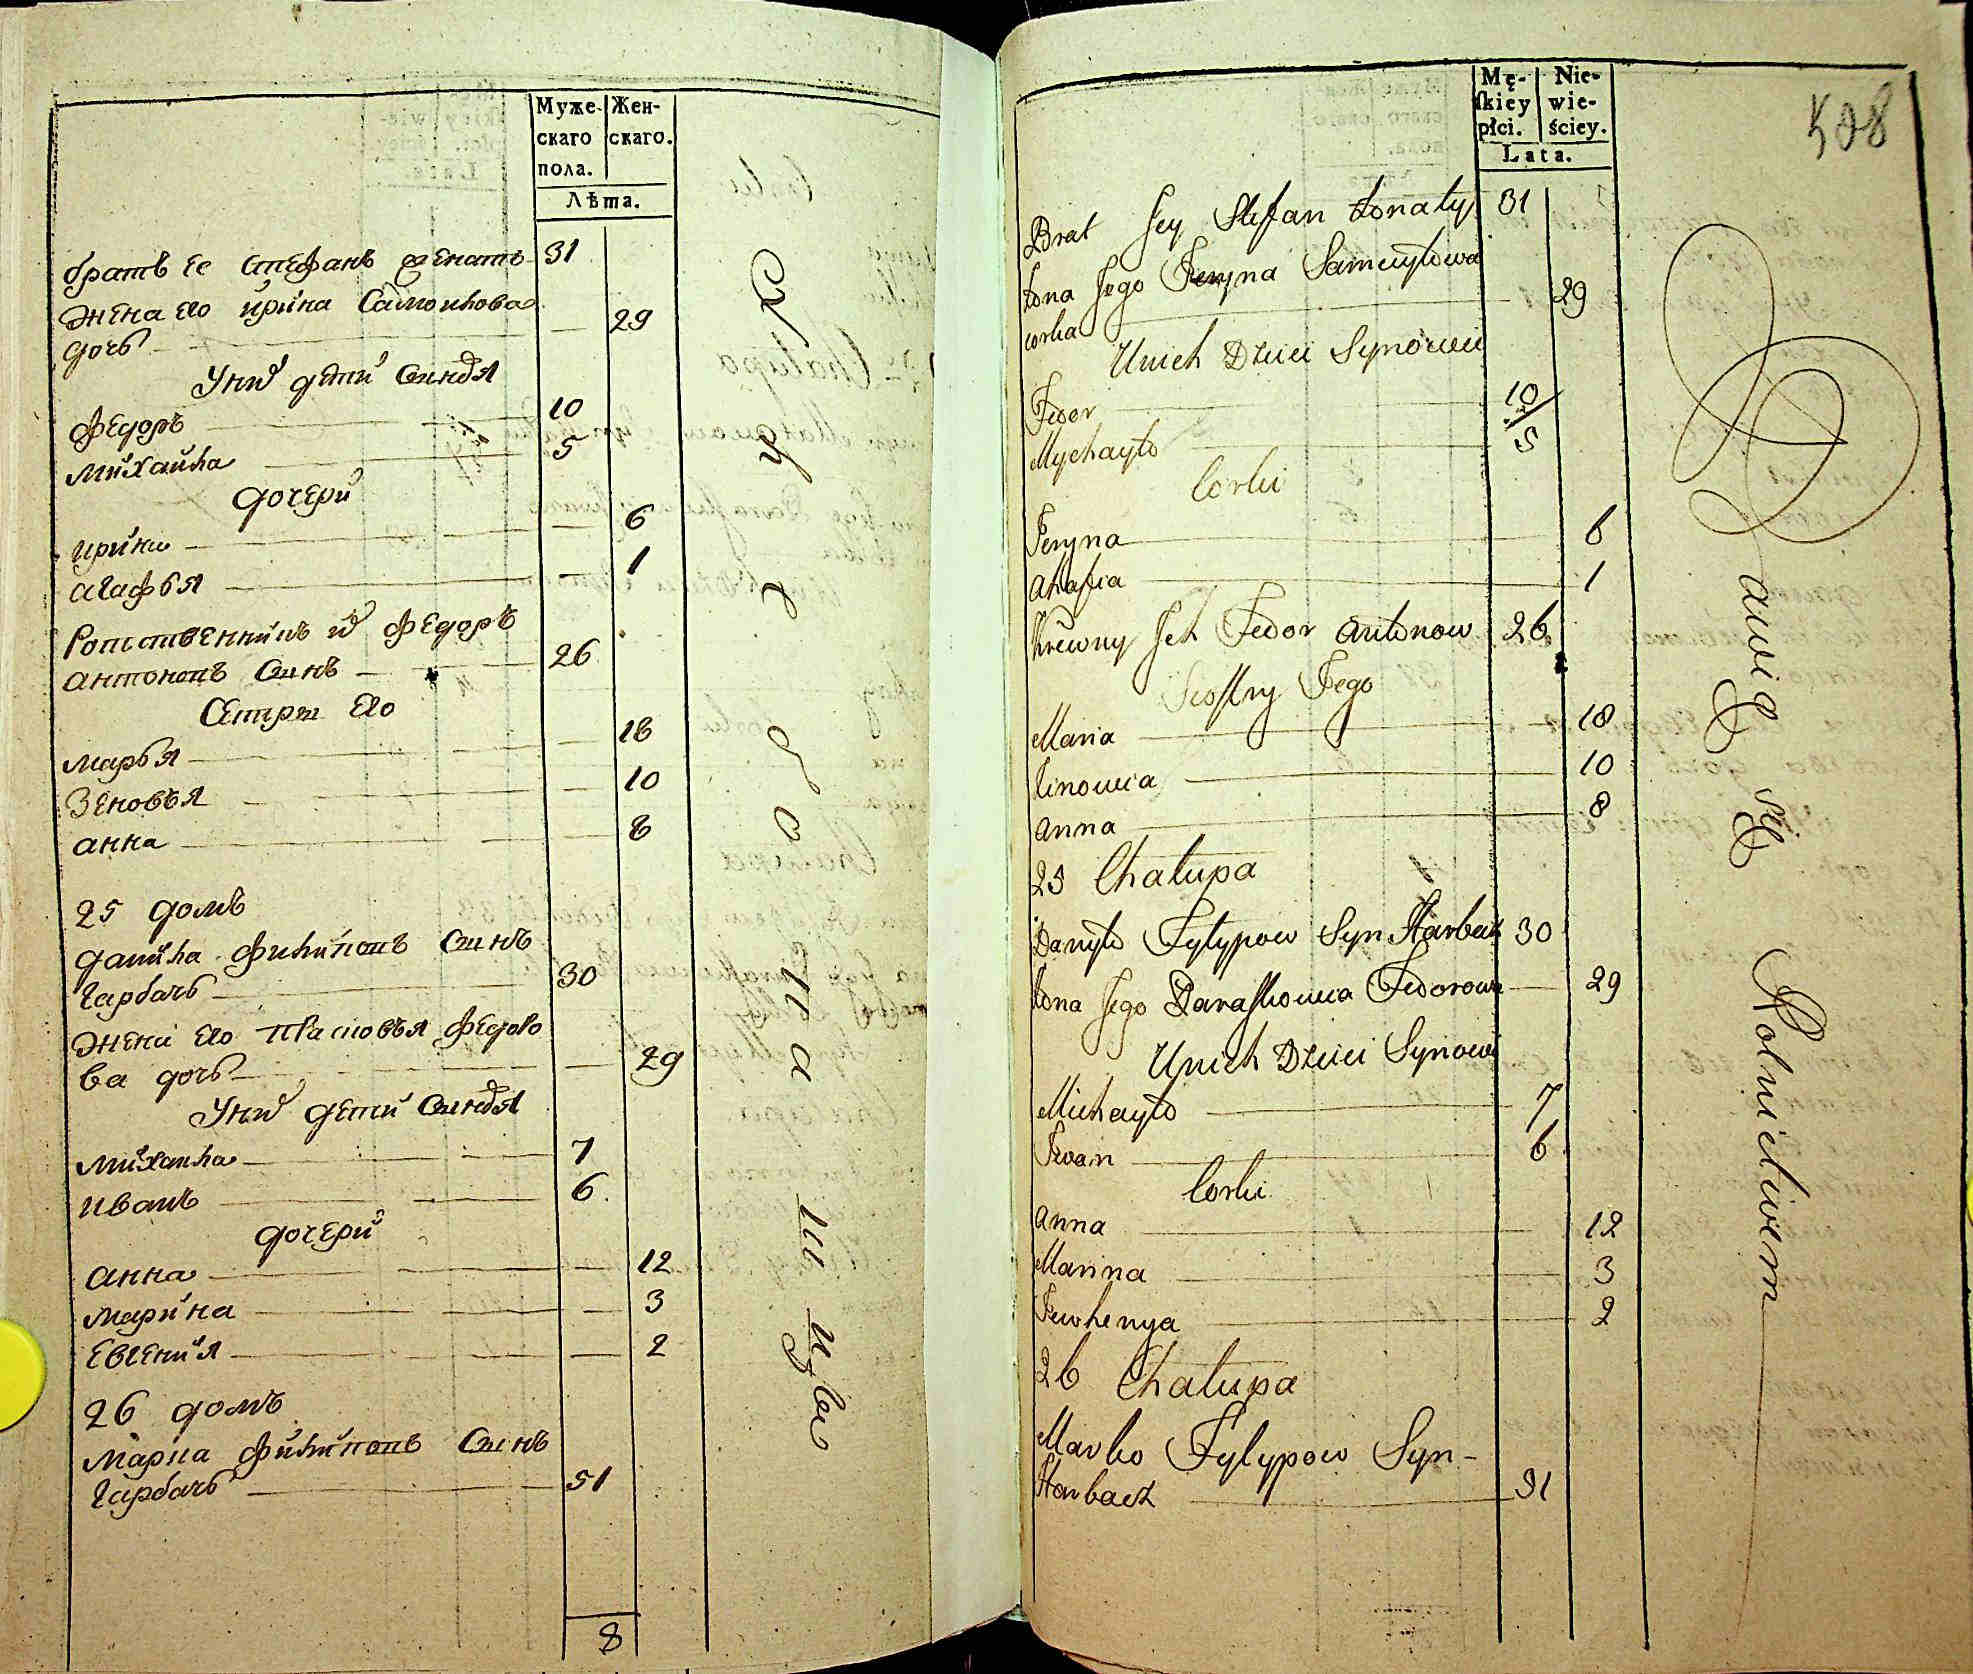 Муже-
скаго
пола.
Жен-
скаго.
Лѣта.
братъ ее Стефанъ женатъ 31
жена его ирина Самоилова
дочь 29
У них дети Синовя
Федоръ 10
Михаила 5
дочери
ирина 6
агафья 1
Родственникъ их Федоръ
антоновъ Синъ 26
Сестры его
марья 18
Зеновья 10
анна 8
25 домъ
данила Филиповъ Синъ
Гарбачъ 30
жена его Прасковья Федоро
ва дочь 29
У них дети Синовя
Михаила 7
иванъ 6
дочери
анна 12
марина 3
Евгения 2
26 домъ
Марка Филиповъ Синъ
Гарбачъ 51
8
Mę-
skiey
płci.
Nie-
wie-
ściey.
Lata.
508
Brat Jey Stefan żonaty 31
żona Jego Jeryna Samuyłowa
corka 29
U nich Dzieci Synowie
Fedor 10
Mychayło 5
Corki
Jeryna 6
Ahafia 1
Krewny Jch Fedor Antonow 26
Siostry Jego
Maria 18
Zinowia 10
Anna 8
25 Chałupa
Danyło Fylypow Syn Harbacz 30
żona Jego Paraskowia Fedorowa 29
U nich Dzieci Synowie
Michayło 7
Iwan 6
Corki
Anna 12
Marina 3
Jewhenya 2
26 Chałupa
Marko Fylypow Syn
Harbacz 51
bawią Się Rolnictwem